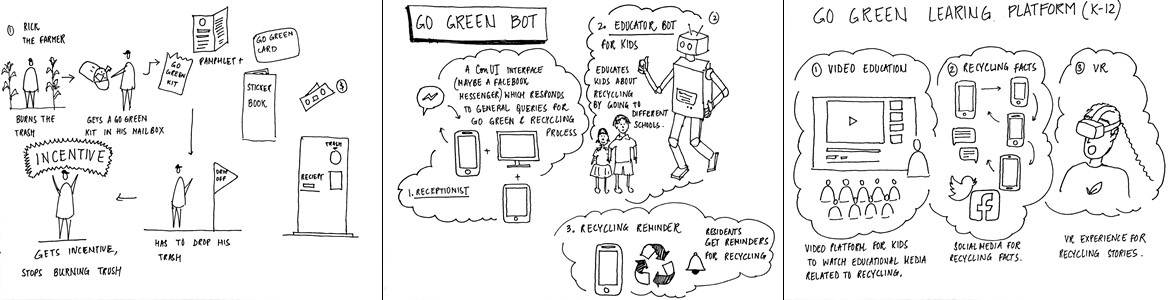 ① RICK
THE FARMER
BURNS THE
TRASH
GETS A GO GREEN
KIT IN HIS MAILBOX
GO
GREEN
KIT
PAMPHLET +
GO GREEN
CARD
STICKER
BOOK
$
TRASH
RECIEPT
INCENTIVE
GETS INCENTIVE,
STOPS BURNING TRUSH
DROP
OFF
HAS TO DROP HIS
TRASH
GO GREEN BOT
A ConUI INTERFACE
(MAYBE A FACEBOOK
MESSENGER) WHICH RESPONDS
TO GENERAL QUERIES FOR
GO GREEN & RECYCLING
PROCESS
+
+
1. RECEPTIONIST
②
2. EDUCATOR BOT
FOR KIDS
EDUCATES
KIDS ABOUT
RECYCLING
BY GOING TO
DIFFERENT
SCHOOLS.
3. RECYCLING REMINDER
RESIDENTS
GET REMINDERS
FOR RECYCLING
GO GREEN LEARING PLATFORM (K-12)
① VIDEO EDUCATION
VIDEO PLATFORM FOR KIDS
TO WATCH EDUCATIONAL MEDIA
RELATED TO RECYCLING.
② RECYCLING FACTS
f
SOCIAL MEDIA FOR
RECYCLING FACTS.
③ VR
VR EXPERIENCE FOR
RECYCLING STORIES.